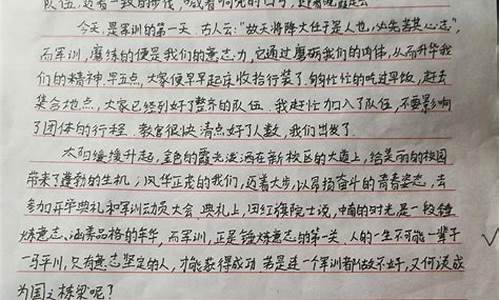 队伍,迈着一致的步伐,喊着响亮的口号,迎着晓霞走去
今天,是军训的第一天.古人云:“故天将降大任于是人也,必先苦其心志”,
而军训,磨练的便是我们的意志力,它通过磨砺我们的肉体,从而升华我
们的精神.早五点,大家便早早起床收拾行装了.匆忙忙的吃过早饭,赶去
集合地点,大家已经列好了整齐的队伍.我赶忙加入了队伍,不要影响
了团体的行程.教官很快清点好了人数,我们出发了.
太阳缓缓升起,金色的霞光洒满在新校区的大道上,给美丽的校园
带来了蓬勃的生机;风华正茂的我们,迈着大步,以昂扬奋斗的青春姿态,去
参加开学典礼和军训动员大会.典礼上,田红旗院士说,中南的时光是一段锤
炼意志、涵养品格的年华,而军训,正是锤炼意志的第一关.人的一生不可能一辈子
一马平川,只有意志坚定的人,才能获得成功.若是连一个军训都做不好,又何谈成
为国之栋梁呢?